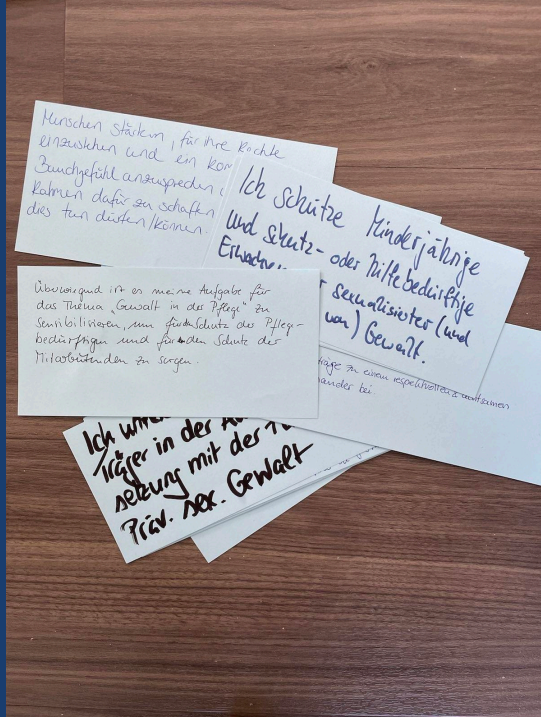 Menschen stärken, für ihre Rechte
einzustehen und ein
Bauchgefühl anzusprechen
Rahmen dafür zu schaffen
dies tun dürfen/können.
Ich schütze Minderjährige
und schutz- oder hilfebedürftige
sexualisierter (und
von) Gewalt.
Überwiegend ist es meine Aufgabe für
das Thema „Gewalt in der Pflege" zu
sensibilisieren, um für den Schutz der Pflege-
bedürftigen und für den Schutz der
Mitarbeitenden zu sorgen.
zu einem respektvollen &
bei
Ich
Träger in der
setzung mit der
Präv. sex. Gewalt